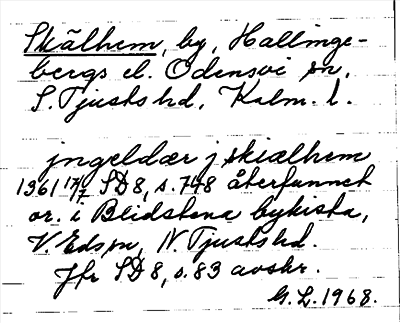 Skälhem, by, Hallinge-
bergs el. Odensvi sn,
S. Tjusts hd, Kalm. l.
jngeldær j skiælhem
1361 17/7 SD 8, s. 748 återfunnet
or. i Blidstena bykista,
V. Eds sn, N. Tjusts hd.
Jfr SD 8, s. 83 avskr.
G. L. 1968.